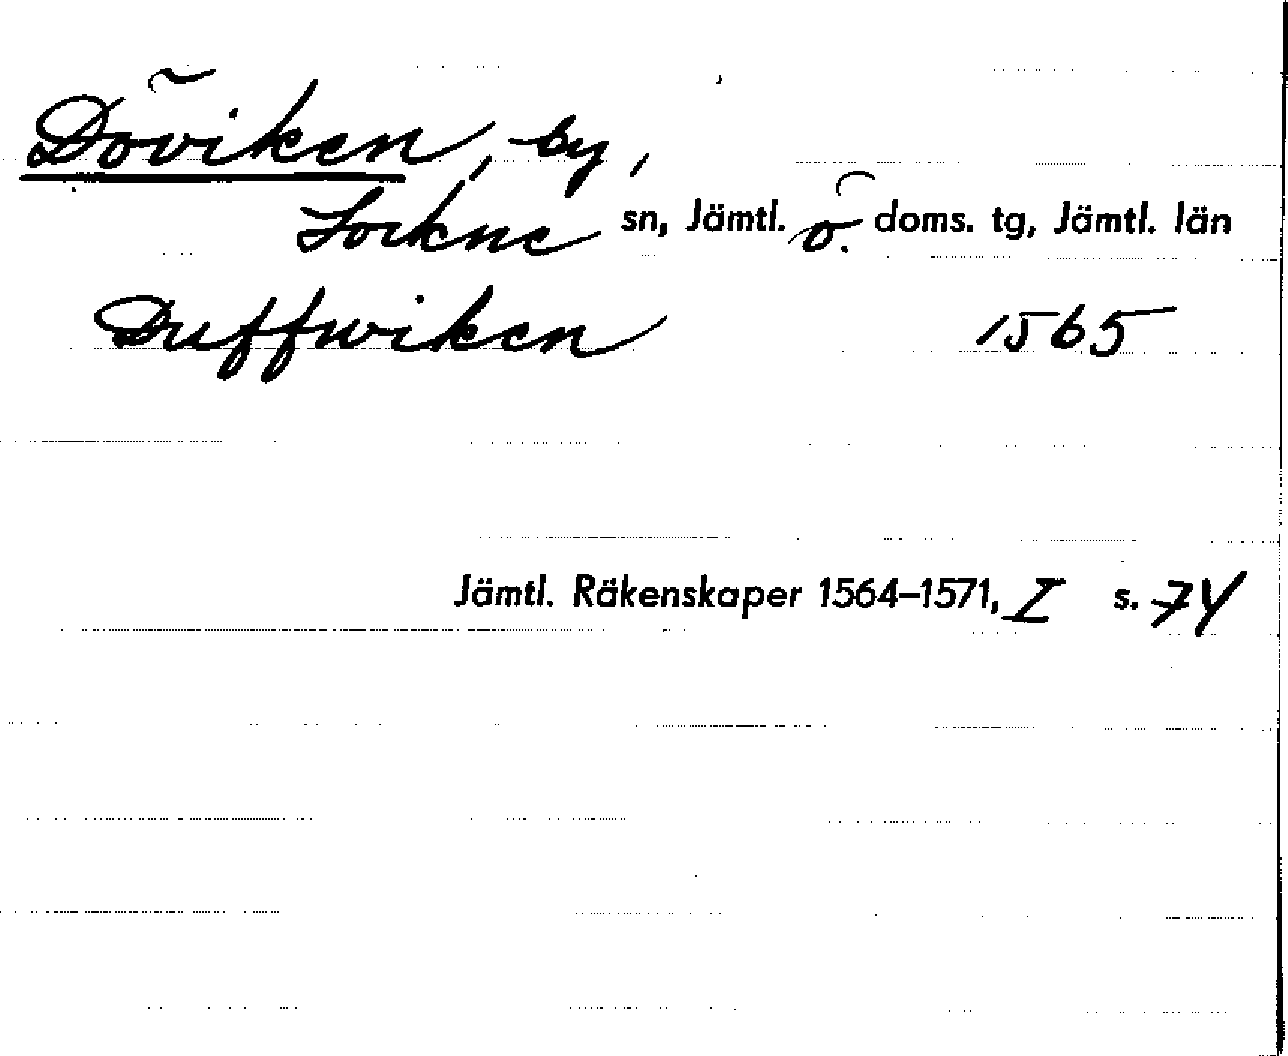 Döviken, by,
Lockne sn, Jämtl. ö. doms. tg, Jämtl. län
Duffwiken 1565
Jämtl. Räkenskaper 1564–1571, I s. 74